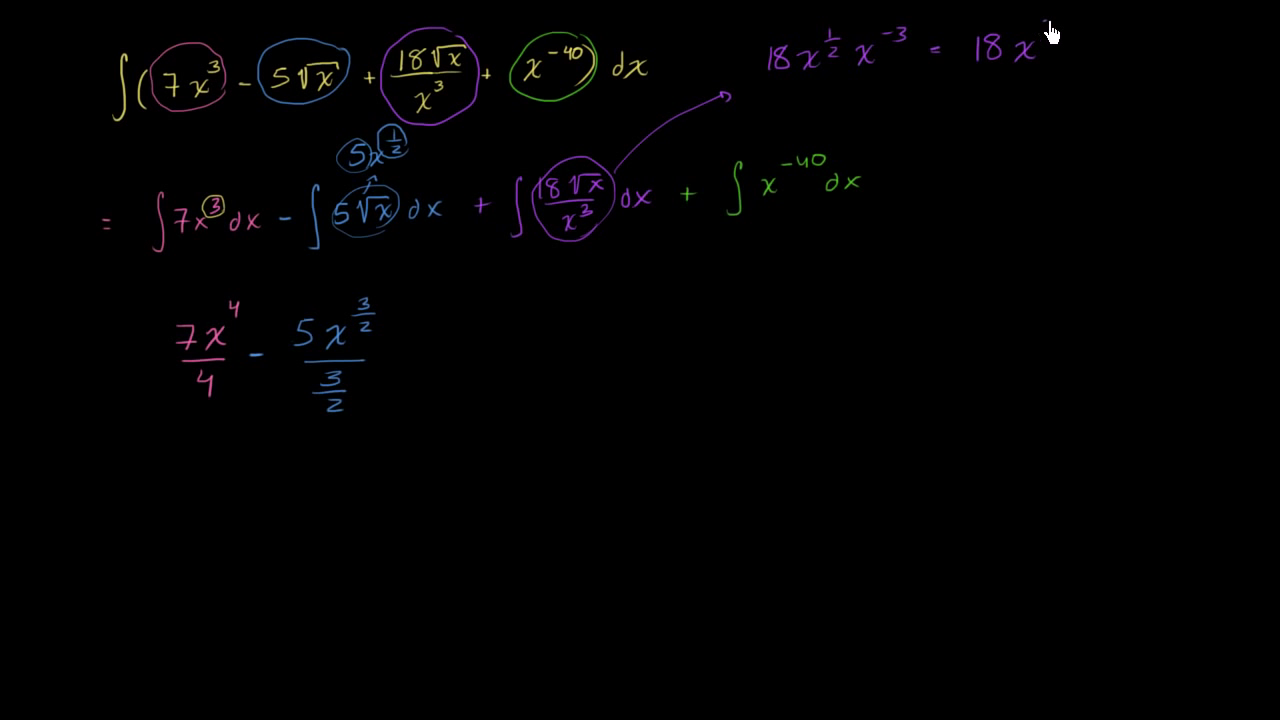 ∫(7x³ - 5√x + 18√x/x³ + x⁻⁴⁰) dx
18x^(1/2) x⁻³ = 18x
5x^(1/2)
= ∫7x³dx - ∫5√x dx + ∫18√x/x³ dx + ∫x⁻⁴⁰dx
7x⁴/4 - 5x^(3/2)/(3/2)